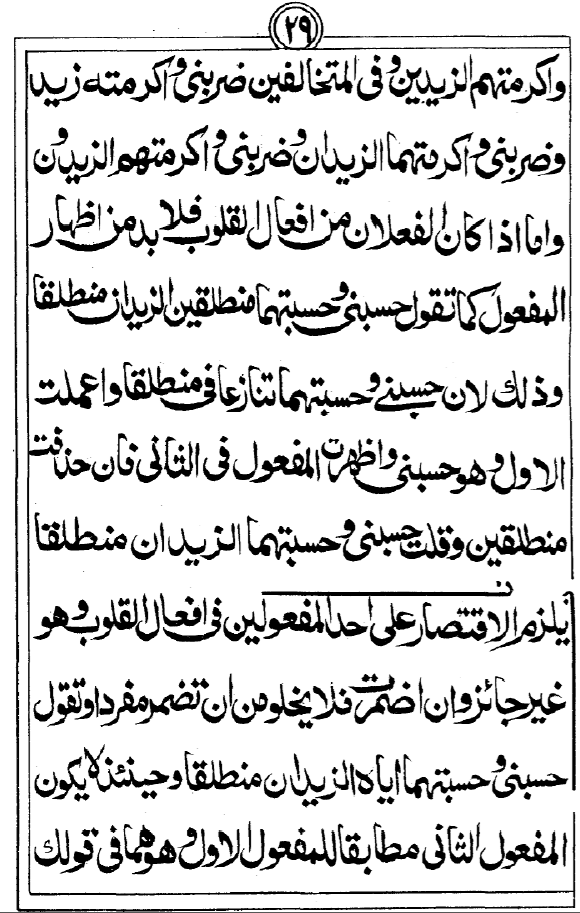 ٢٩
واكرمتهم الزيدين وفى المتخالفين ضربنى واكرمته زيد
وضربنى واكرمتهما الزيدان وضربنى واكرمتهم الزيدون
واما اذا كان الفعلان من افعال القلوب فلا بد من اظهار
المفعول كما تقول حسبنى وحسبتهما منطلقين الزيدان منطلقا
وذلك لان حسبنى وحسبتهما تنازعا فى منطلقا واعملت
الاول وهو حسبنى واظهرت المفعول فى الثانى فان حذفت
منطلقين وقلت حسبنى وحسبتهما الزيدان منطلقا
يلزم الاقتصار على احد المفعولين فى افعال القلوب وهو
غير جائز وان اضمرت فلا يخلو من ان تضمر مفردا وتقول
حسبنى وحسبتهما اياه الزيدان منطلقا وحينئذ لا يكون
المفعول الثانى مطابقا للمفعول الاول وهو هما فى قولك